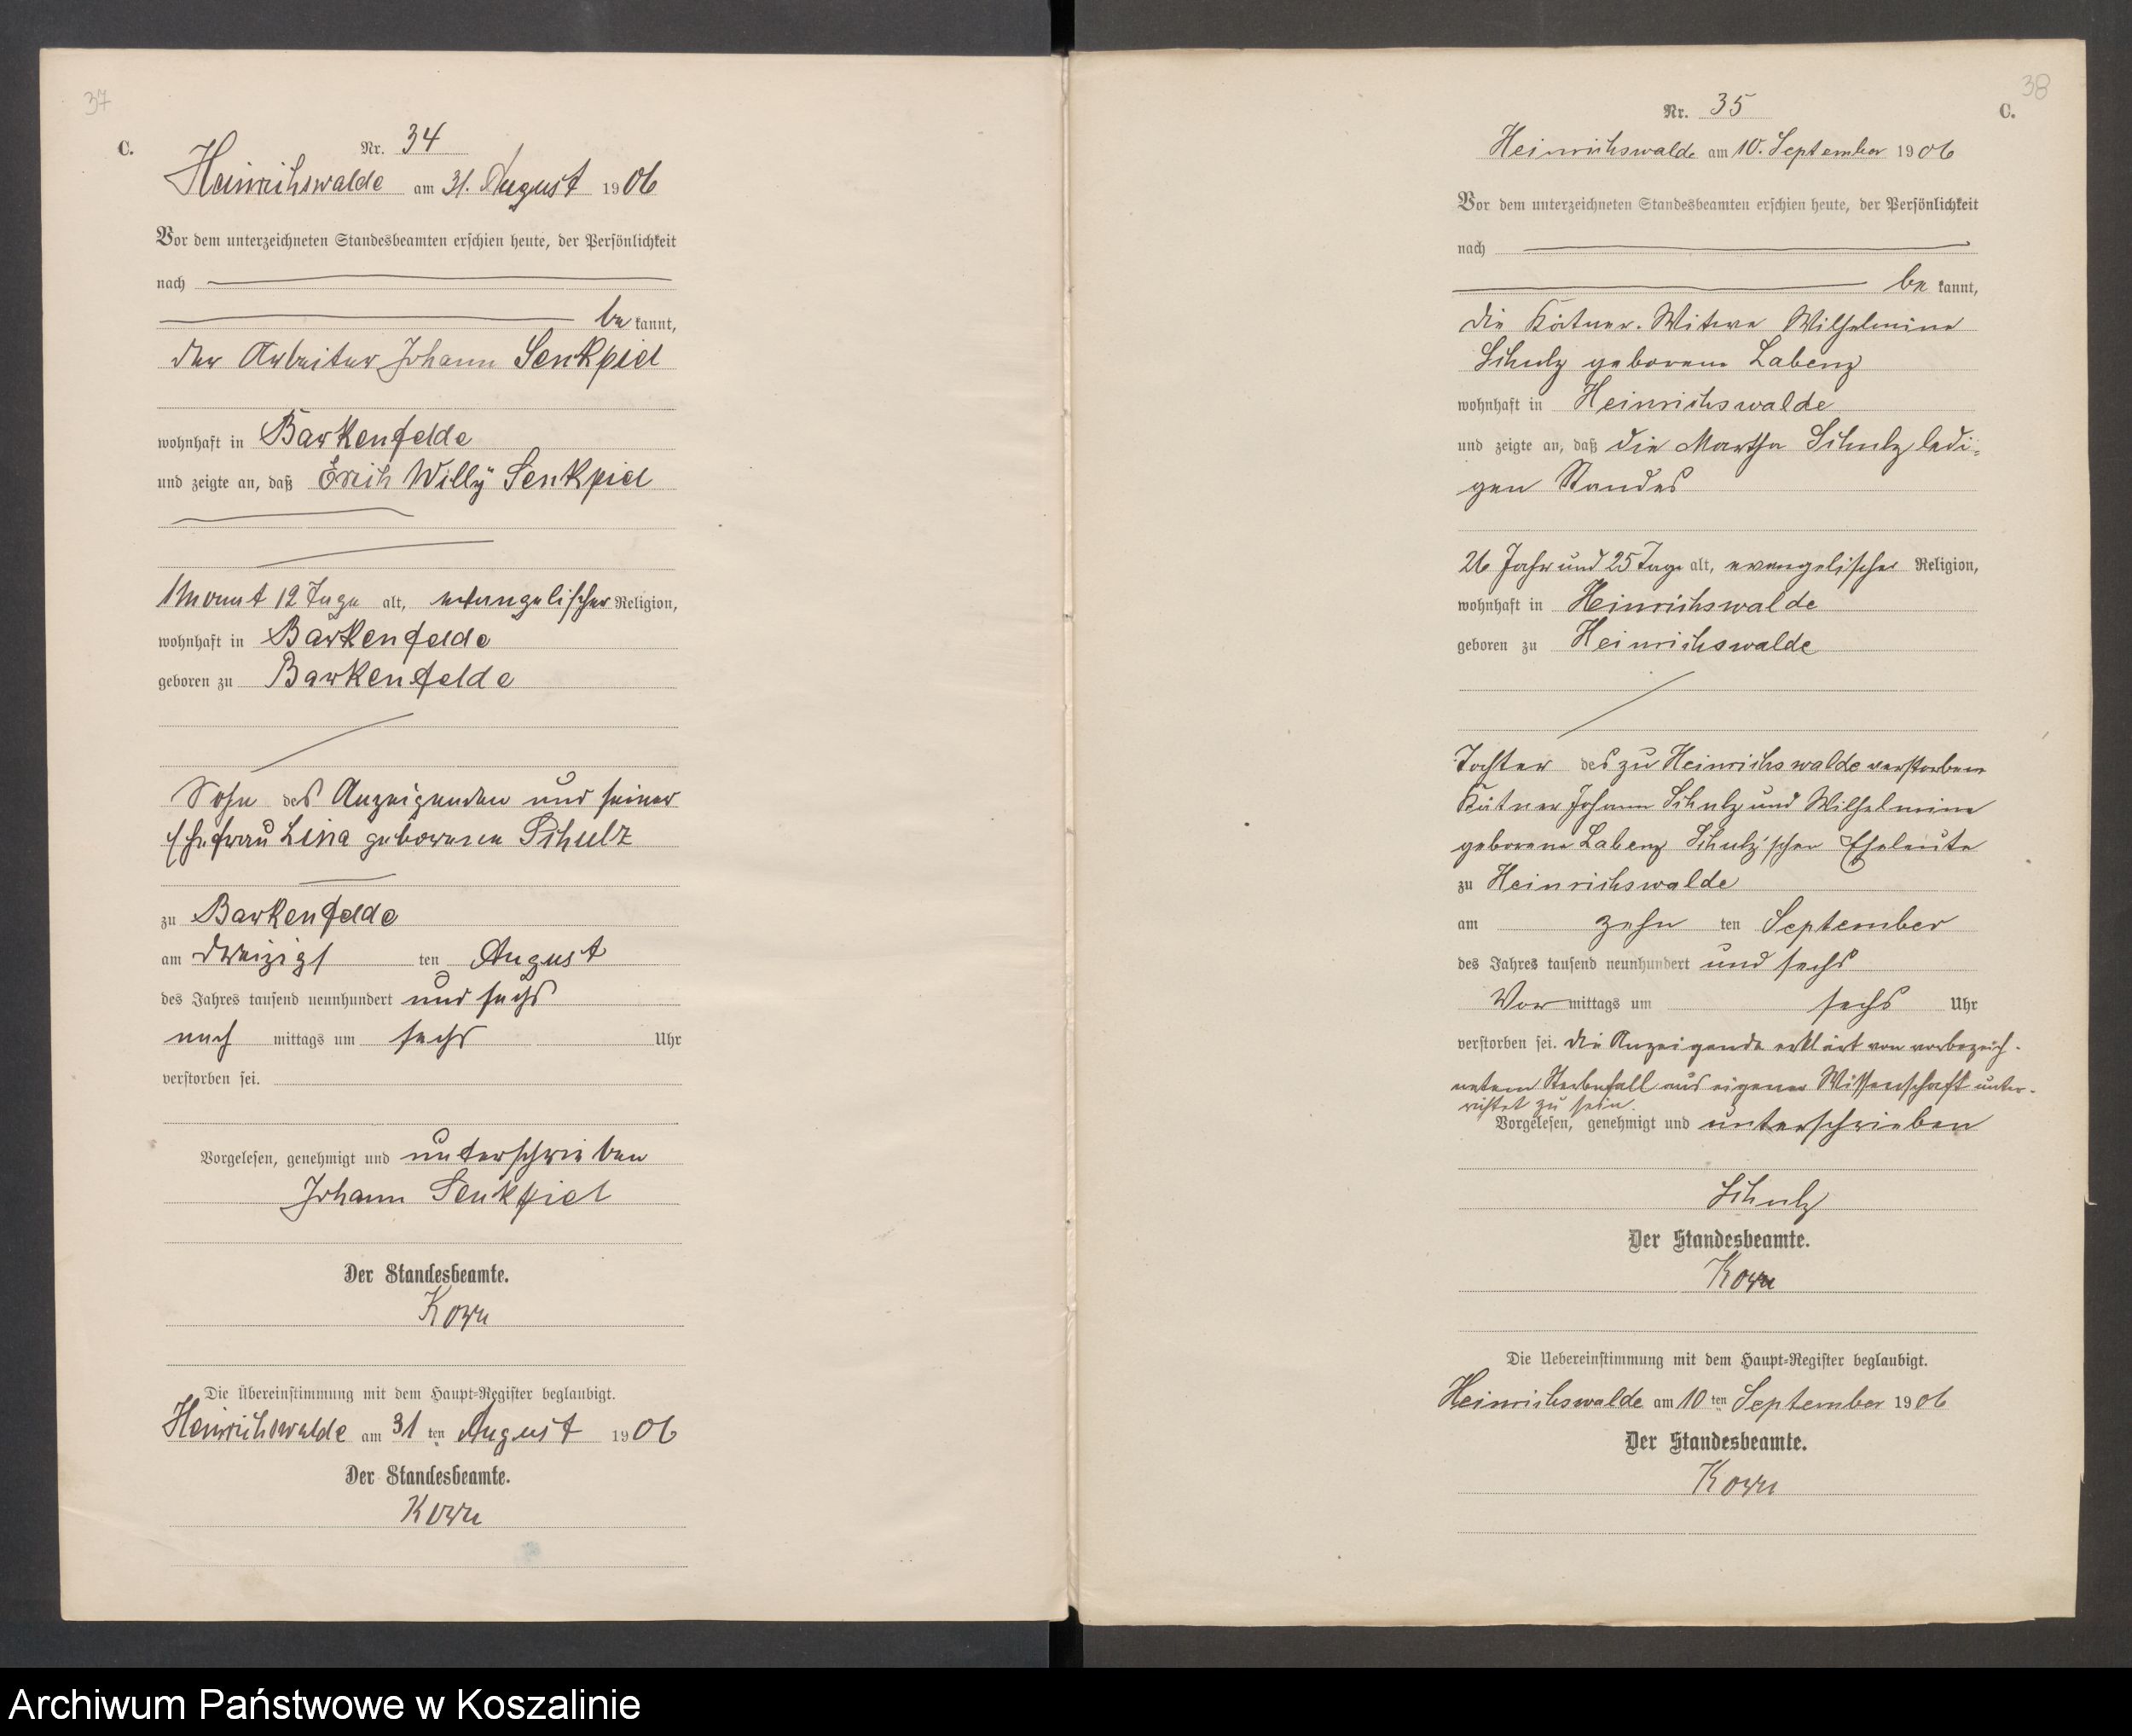 37
C.
Nr. 34
Heinrichswalde am 31. August 1906
Vor dem unterzeichneten Standesbeamten erschien heute, der Persönlichkeit
nach
be kannt,
der Arbeiter Johann Senkpiel
wohnhaft in Barkenfelde
und zeigte an, daß Erich Willÿ Senkpiel
1 Monat 12 Tage alt, evangelischer Religion,
wohnhaft in Barkenfelde
geboren zu Barkenfelde
Sohn des Anzeigenden und seiner
Ehefrau Lina geborenen Schulz
zu Barkenfelde
am dreizigs ten August
des Jahres tausend neunhundert und sechs
nach mittags um sechs Uhr
verstorben sei.
Vorgelesen, genehmigt und unterschrieben
Johann Senkpiel
Der Standesbeamte.
Die Übereinstimmung mit dem Haupt-Register beglaubigt.
Heinrichswalde am 31 ten August 1906
Der Standesbeamte.
38
C.
Nr. 35
Heinrichswalde am 10. September 1906
Vor dem unterzeichneten Standesbeamten erschien heute, der Persönlichkeit
nach
be kannt,
die Kätner-Witwe Wilhelmine
Schulz geborene Labenz
wohnhaft in Heinrichswalde
und zeigte an, daß die Martha Schulz ledi-
gen Standes
26 Jahr und 25 Tage alt, evangelischer Religion,
wohnhaft in Heinrichswalde
geboren zu Heinrichswalde
Tochter des zu Heinrichswalde verstorbenen
Kätner Johann Schulz und Wilhelmine
geborene Labenz Schulz'schen Eheleute
zu Heinrichswalde
am zehn ten September
des Jahres tausend neunhundert und sechs
Vor mittags um sechs Uhr
verstorben sei. Die Anzeigende erklärt von vorbezeich-
netem Sterbefall aus eigener Wissenschaft unter-
richtet zu sein.
Vorgelesen, genehmigt und unterschrieben
Schulz
Der Standesbeamte.
Die Uebereinstimmung mit dem Haupt-Register beglaubigt.
Heinrichswalde am 10 ten September 1906
Der Standesbeamte.
Archiwum Państwowe w Koszalinie